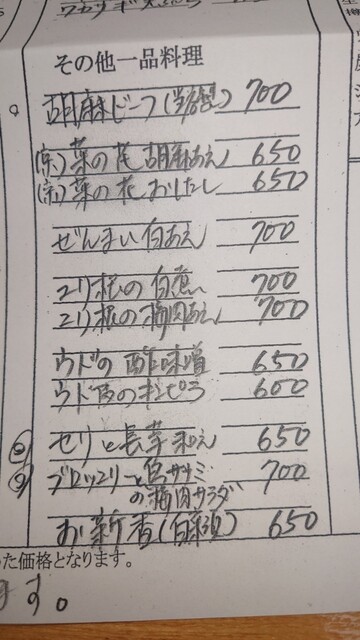 その他一品料理
胡麻ビーフ(当店製) 700
(京)菜の花胡麻あえ 650
(京)菜の花おしたし 650
ぜんまい白あえ 700
ユリ根の白煮 700
ユリ根の梅肉あえ 700
ウドの酢味噌 650
ウド皮のキンピラ 600
セリと長芋和え 650
ブロッコリーと鳥ササミ 700
の梅肉サラダ
お新香(自家製) 650
た価格となります。
す。